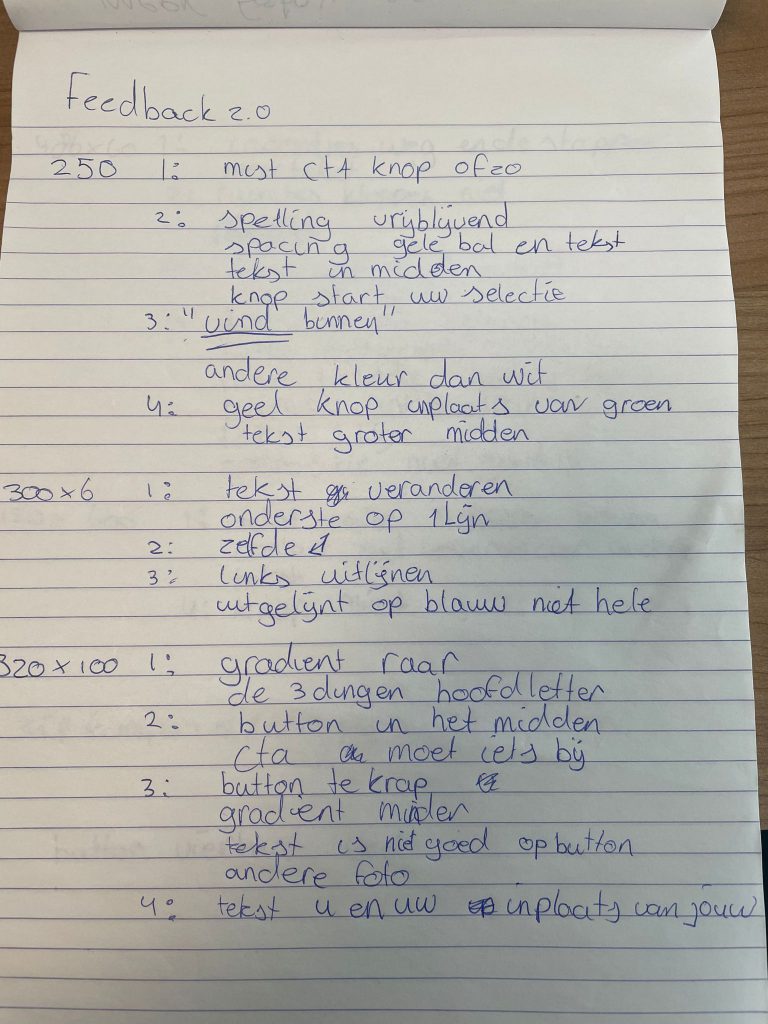 Feedback 2.0
250 1: mist CtA knop of zo
2: spelling vrijblijvend
spacing gele bal en tekst
tekst in midden
knop start uw selectie
3: "vind binnen"
andere kleur dan wit
4: geel knop inplaats van groen
tekst groter midden
300x6 1: tekst veranderen
onderste op 1 Lijn
2: zelfde 1
3: links uitlijnen
uitgelijnt op blauw niet hele
320x100 1: gradient raar
de 3 dingen hoofdletter
2: button in het midden
Cta moet iets bij
3: button te krap
gradient minder
tekst is niet goed op button
andere foto
4: tekst u en uw inplaats van jouw